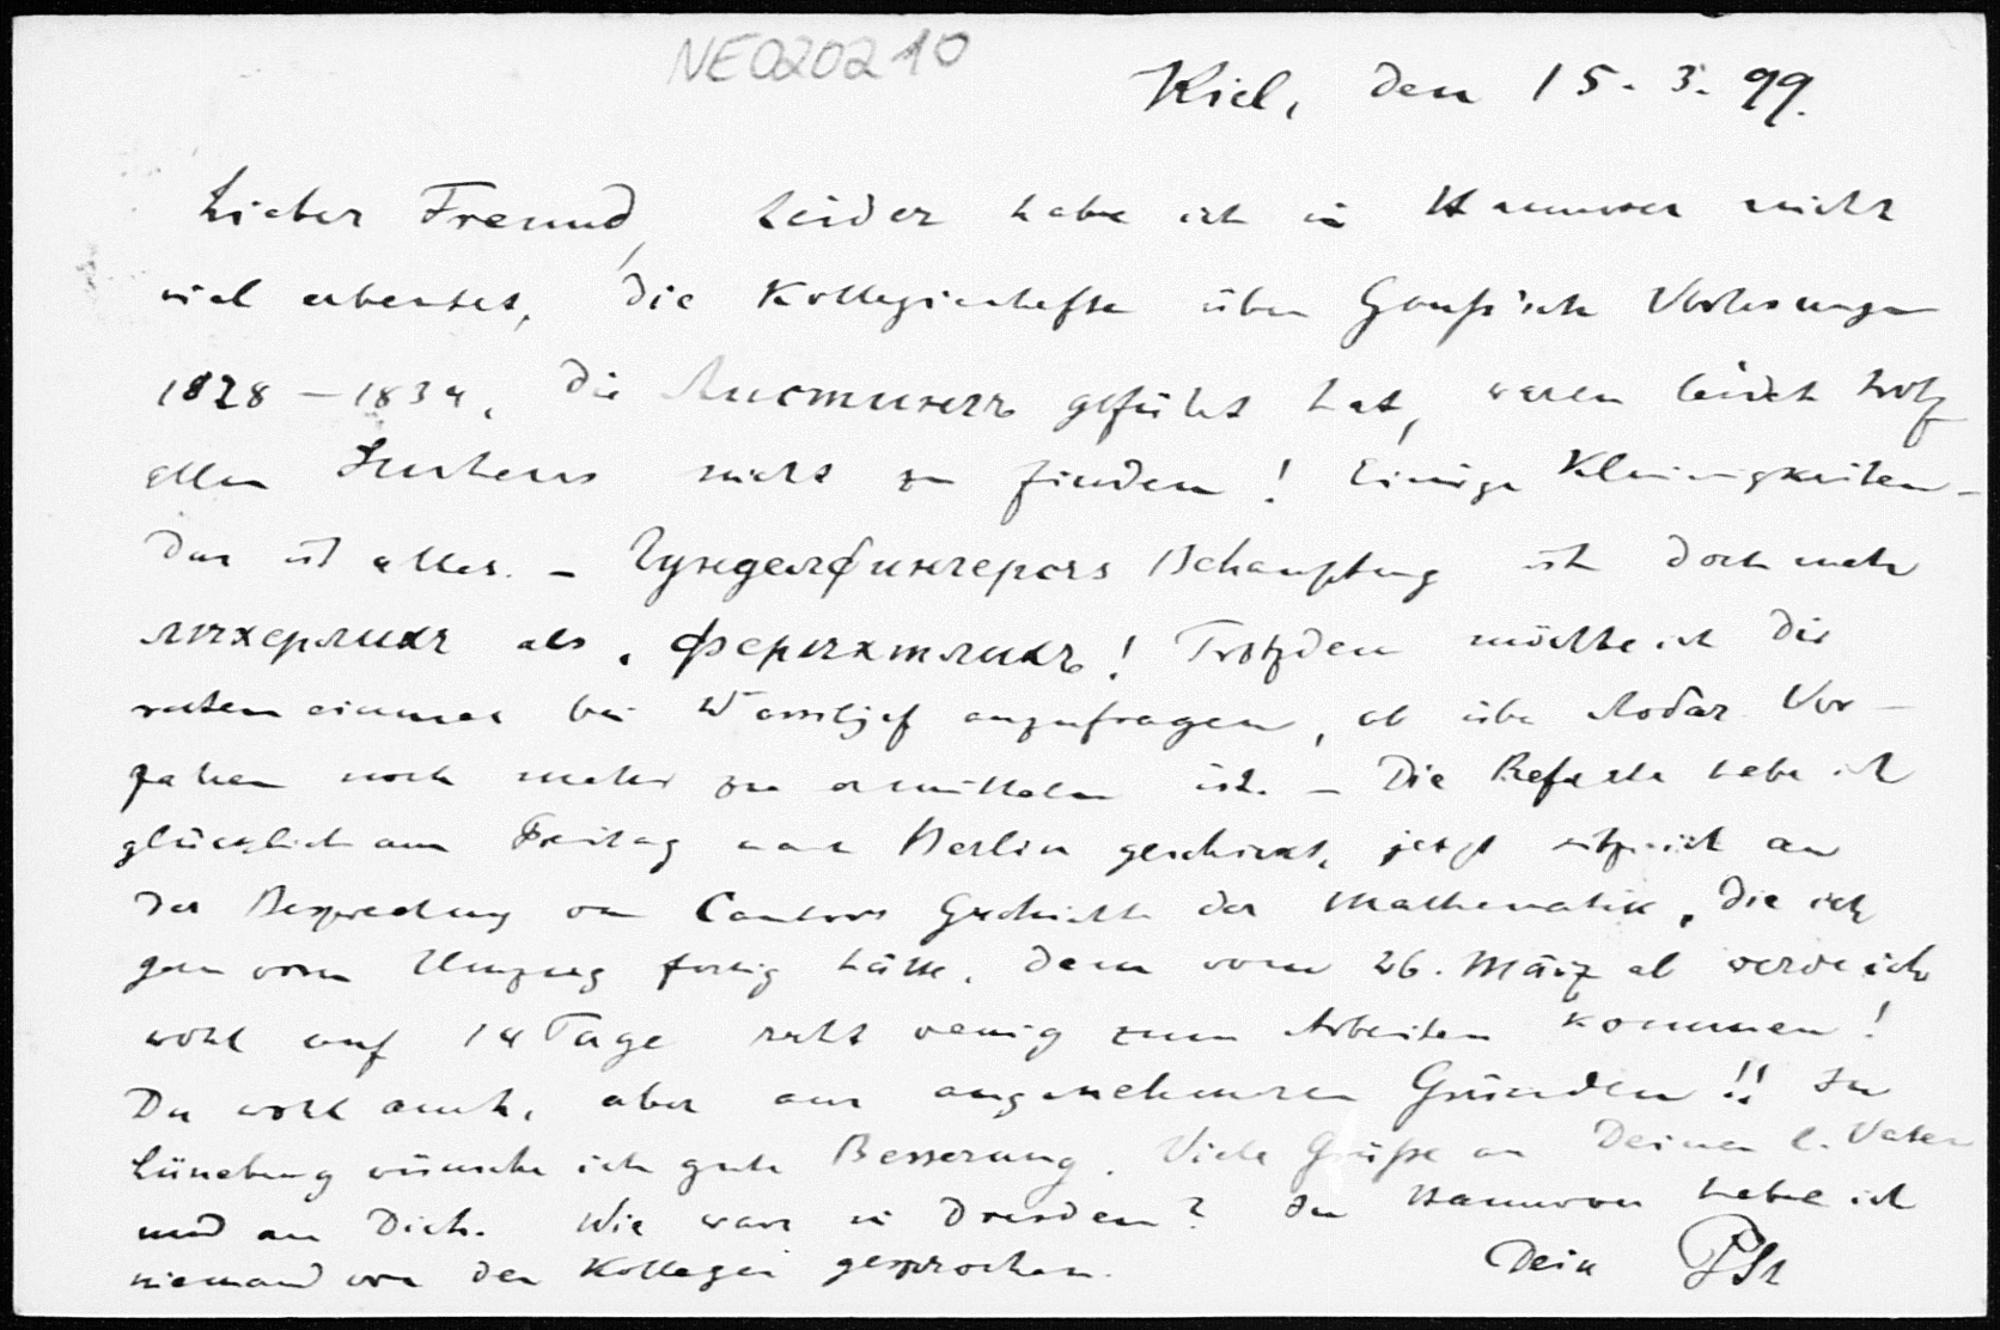 NE020210
Kiel, den 15. 3. 99.
Lieber Freund, Leider habe ich in Hannover nicht
viel erbeutet, die Kollegienhefte über Gauß'sche Vorlesungen
1828 – 1834, die Листингъ geführt hat, waren leider trotz
allen Suchens nicht zu finden! Einige Kleinigkeiten –
das ist alles. – Гунделфингерсs Behauptung ist doch mehr
лэхерлихъ als фернхтлихъ! Trotzdem möchte ich Dir
raten einmal bei Wassiljef anzufragen, ob über Vor-
fahren noch mehr zu ermitteln ist. – Die Referate habe ich
glücklich am Freitag nach Berlin geschickt, jetzt sitze ich an
der Besprechung von Cantors Geschichte der Mathematik, die ich
gern vorm Umzug fertig hätte. Denn vom 26. März ab werde ich
wohl auf 14 Tage recht wenig zum Arbeiten kommen!
Du wohl auch, aber aus angenehmeren Gründen!! In
Lüneburg wünsche ich gute Besserung. Viele Grüße an Deinen l. Vater
und an Dich. Wie war's in Dresden? In Hannover habe ich
niemand von den Kollegen gesprochen. Dein PSt